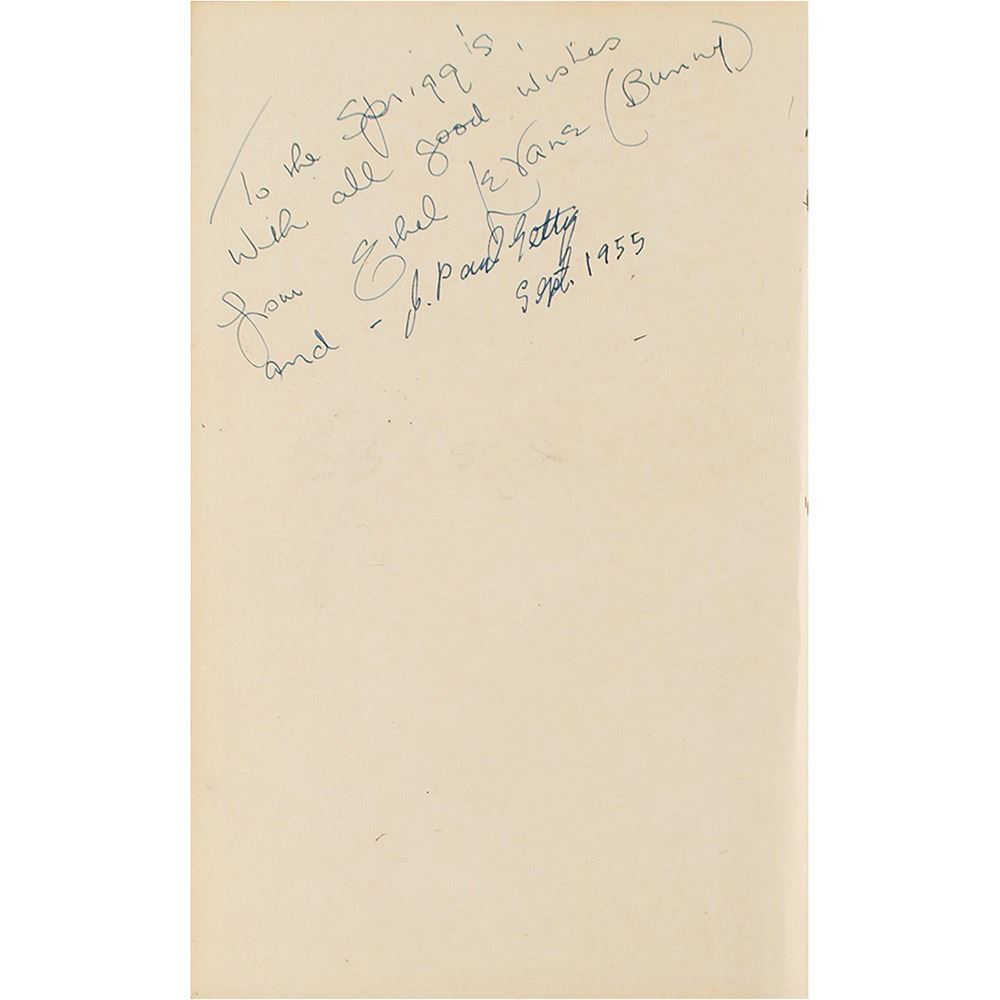 To the Sprigg's,
With all good wishes
from Ethel Le Vane (Bunny)
and - J. Paul Getty
Sept. 1955